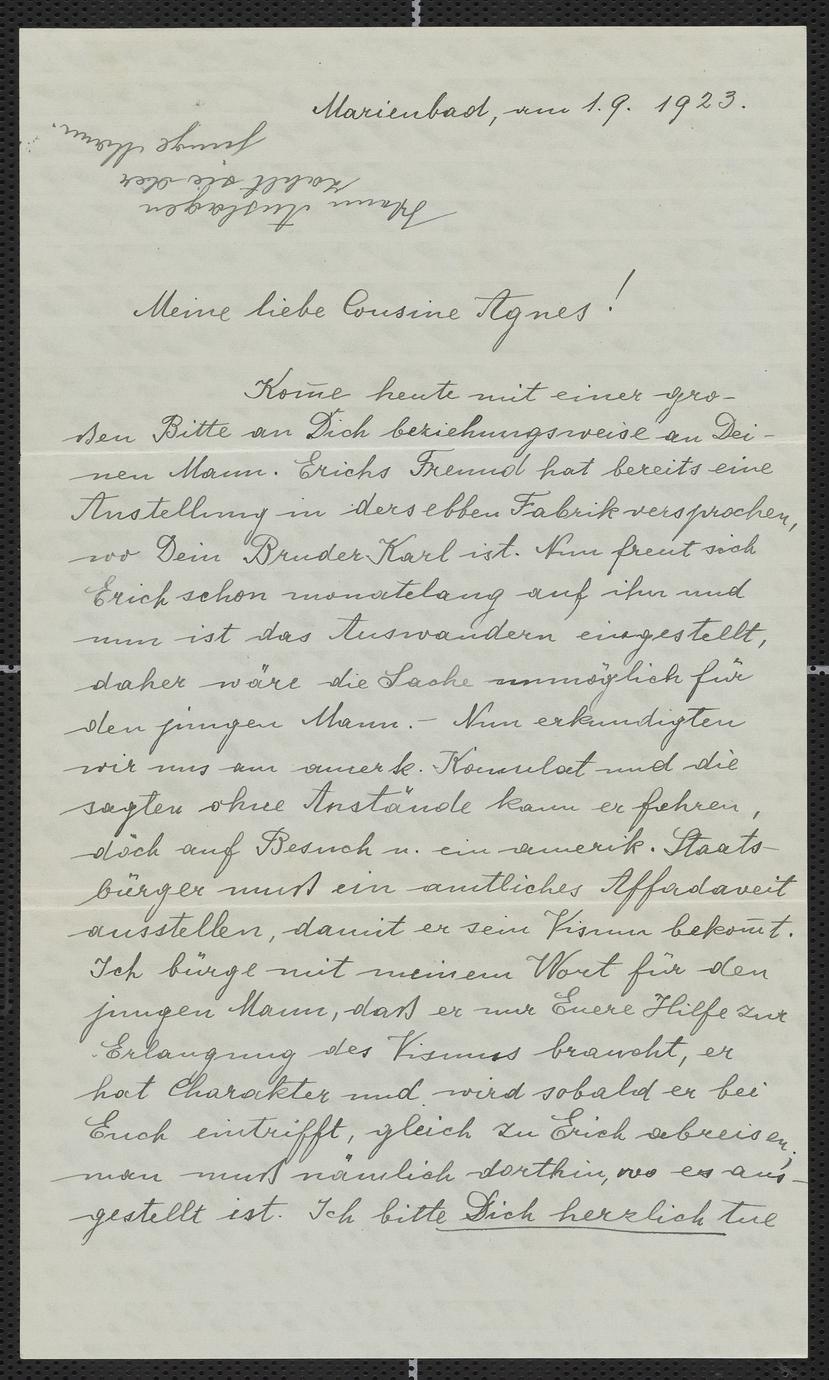 Marienbad, am 1.9. 1923.
Wenn Auslagen
zahlt sie der
junge Mann.
Meine liebe Cousine Agnes!
Kom̄e heute mit einer gro-
ßen Bitte an Dich beziehungsweise an Dei-
nen Mann. Erichs Freund hat bereits eine
Anstellung in ders ebben Fabrik versprochen,
wo Dein Bruder Karl ist. Nun freut sich
Erich schon monatelang auf ihn und
nun ist das Auswandern eingestellt,
daher wäre die Sache unmöglich für
den jungen Mann. – Nun erkundigten
wir uns am amerk. Konsulat und die
sagten ohne Anstände kann er fahren,
doch auf Besuch u. ein amerik. Staats-
bürger muß ein amtliches Affadaveit
ausstellen, damit er sein Visum bekom̄t.
Ich bürge mit meinem Wort für den
jungen Mann, daß er nur Euere Hilfe zur
Erlangung des Visums braucht, er
hat Charakter und wird sobald er bei
Euch eintrifft, gleich zu Erich abreisen,
man muß nämlich dorthin, wo es aus-
gestellt ist. Ich bitte Dich herzlich tue